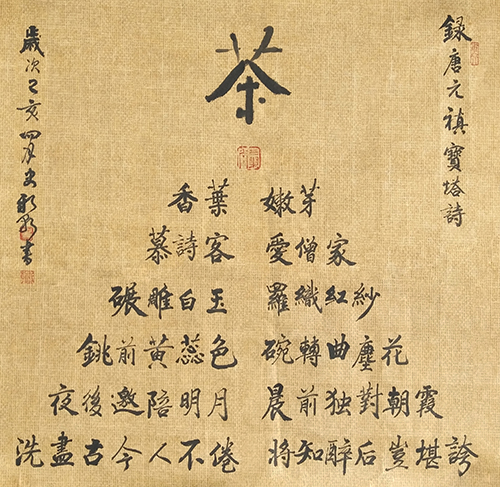 録唐元禛寶塔詩
茶
香葉 嫩芽
慕詩客 愛僧家
碾雕白玉 羅織紅紗
銚前黃蕊色 碗轉曲塵花
夜後邀陪明月 晨前独對朝霞
洗盡古今人不倦 將知醉后豈堪誇
歲次己亥四月史書